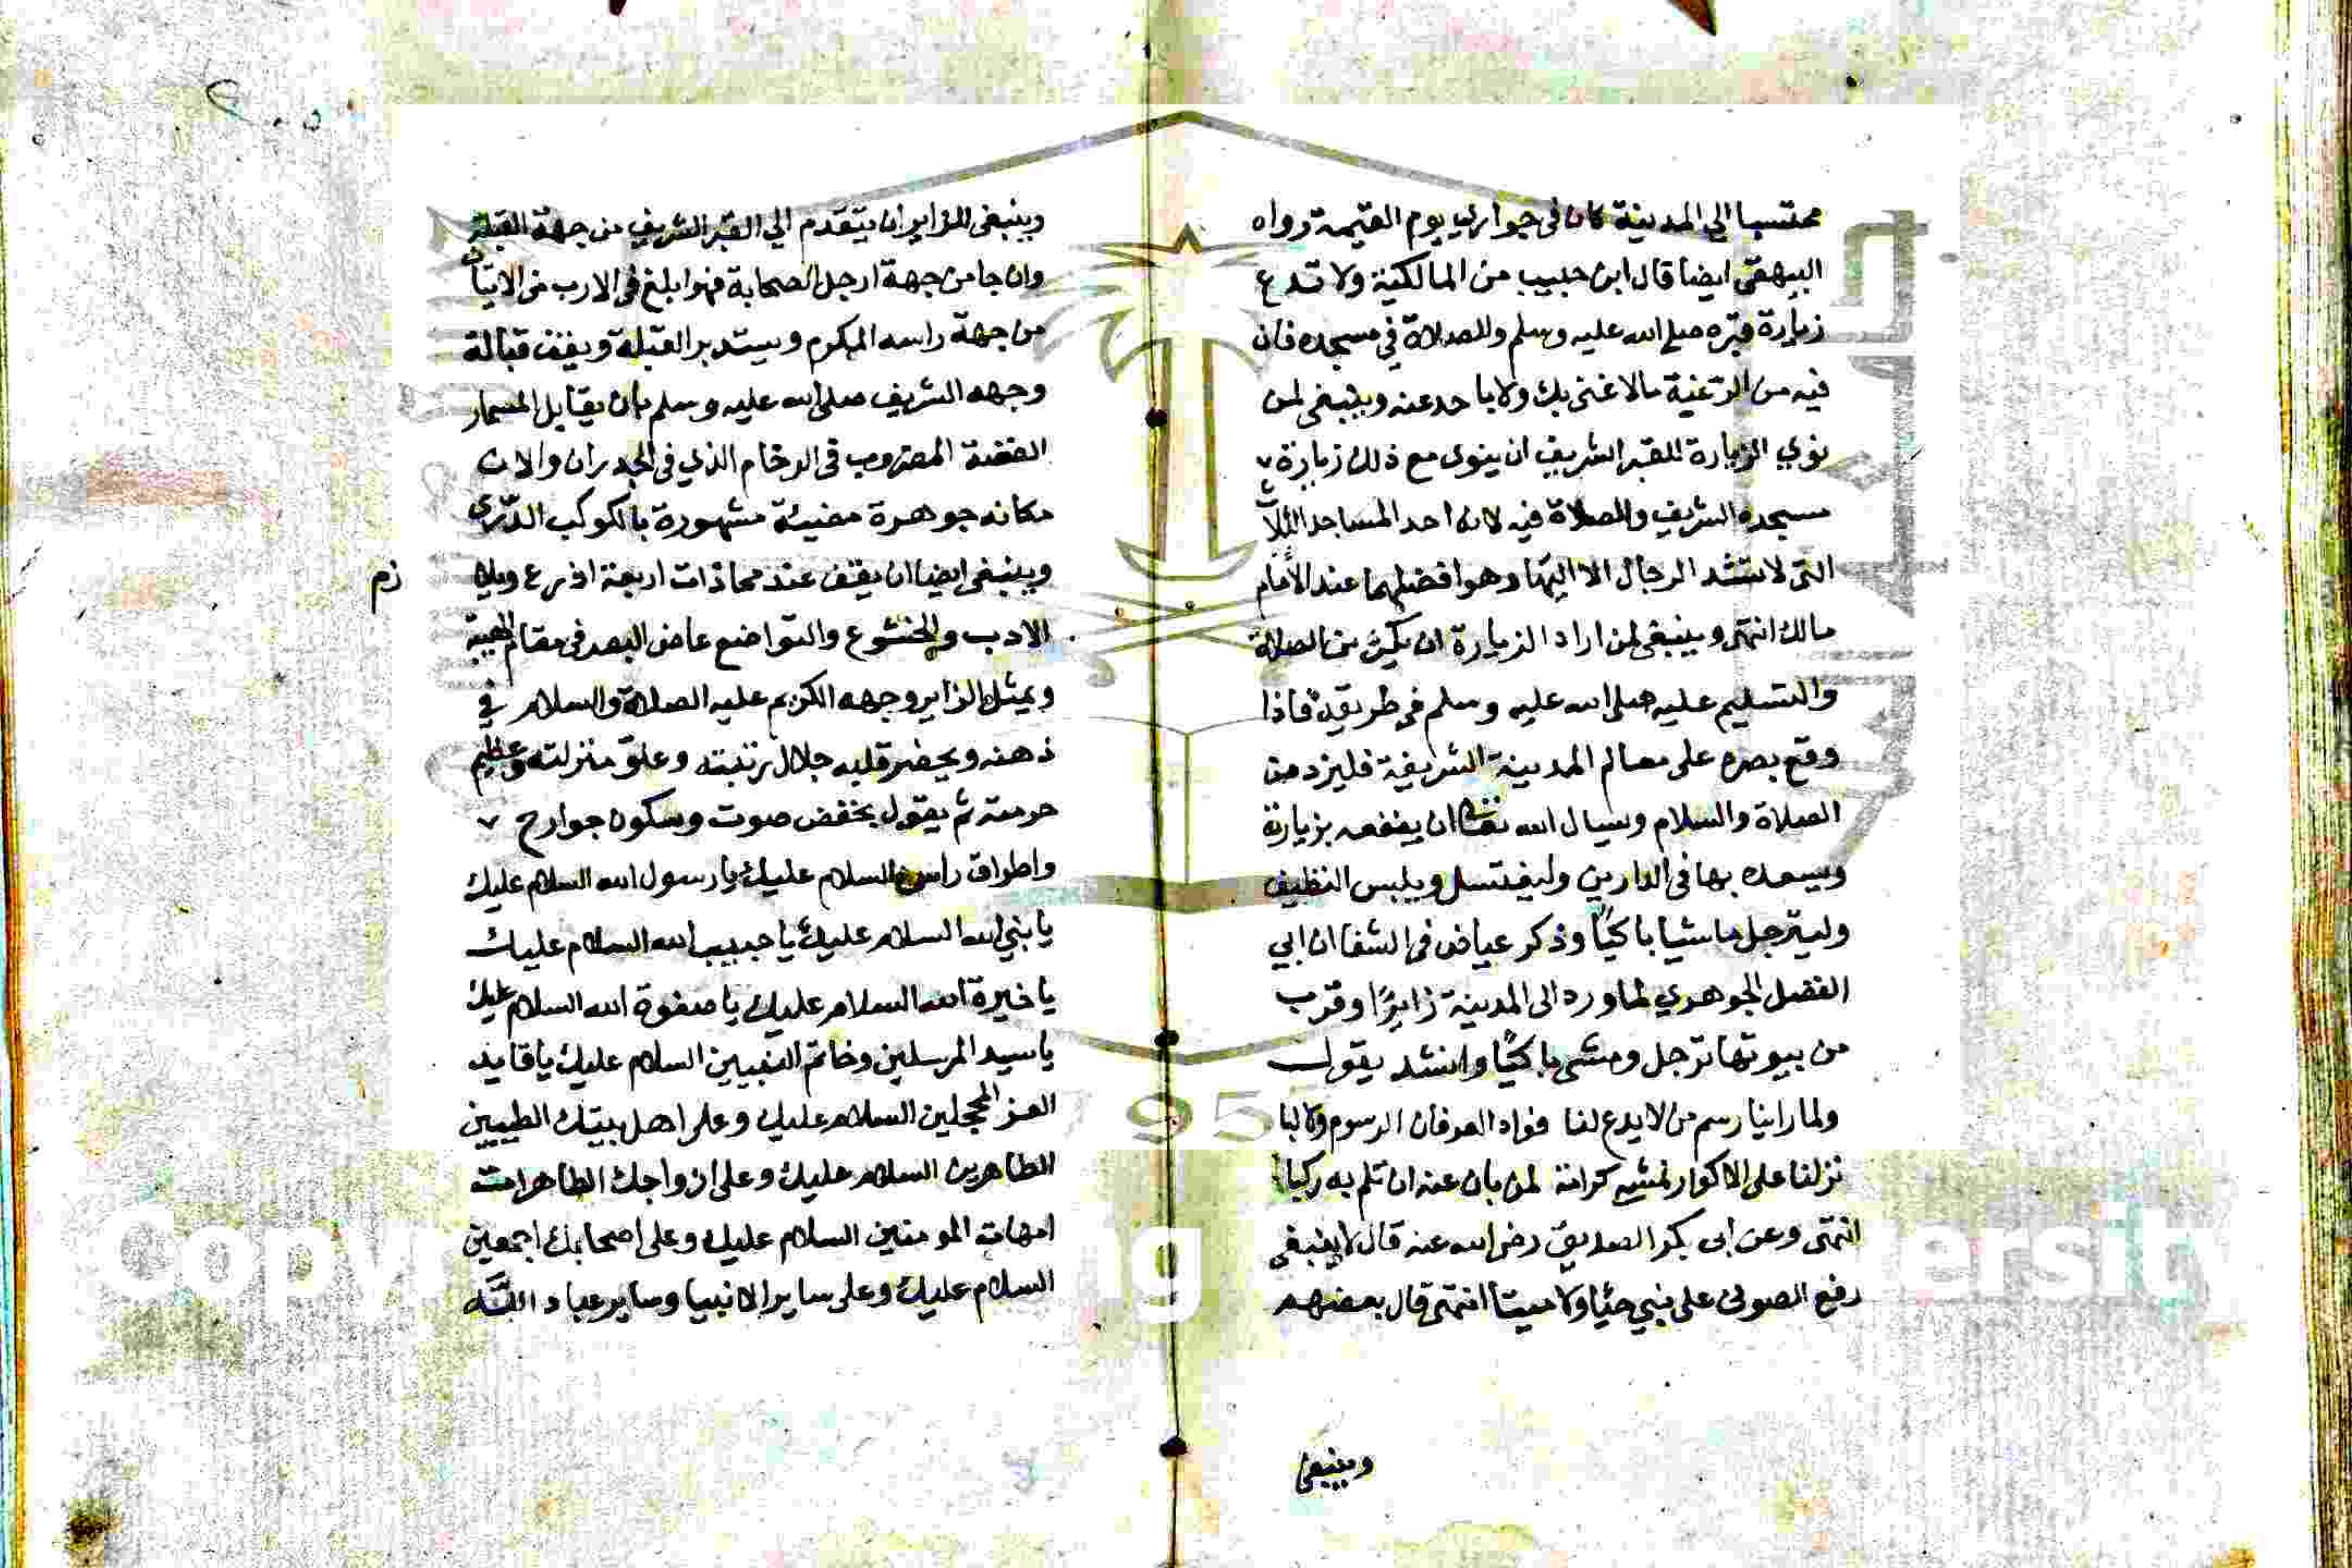 محتسبا الي المدينة كان في جواري يوم القيمة رواه
البيهقي ايضا قال ابن حبيب من المالكية ولا تدع
زيارة قبره صلي الله عليه وسلم والصلاة في مسجده فان
فيه من الرغبة مالا غني بك ولا باحد عنه وينبغي لمن
نوي الزيارة للقبر الشريف ان ينوي مع ذلك زيارة
مسجده الشريف والصلاة فيه لانه احد المساجد الثلاث
التي لا تشد الرحال الا اليها وهو افضلها عند الامام
مالك انتهي وينبغي لمن اراد الزيارة ان يكثر من الصلاة
والتسليم عليه صلي الله عليه وسلم في طريقه فاذا
وقع بصره علي معالم المدينة الشريفة فليزد من
الصلاة والسلام وسيال الله تعالي ان ينفعه بزيارته
ويسعده بها في الدارين وليغتسل ويلبس النظيف
وليترجل ماشيا باكيا وذكر عياض في الشفا ان ابي
الفضل الجوهري لما ورد الي المدينة زايرا وقرب
من بيوتها ترجل ومشي باكيا وانشد يقول
ولما راينا رسم من لا يدع لنا فواد العرفان الرسوم ولا لبا
نزلنا علي الاكوار نمشي كرامة لمن بان عنه ان تلم به ركبا
انتهي وعن ابي بكر الصديق رضي الله عنه قال لا ينبغي
رفع الصوت علي نبي حيا ولا ميتا انتهي قال بعضهم
وينبغي
وينبغي للزاير ان يتقدم الي القبر الشريف من جهة القبلة
وان جا من جهة ارجل الصحابة فهو ابلغ في الادب من الاتيان
من جهة راسه المكرم ويستدبر القبلة ويقف قبالة
وجهه الشريف صلي الله عليه وسلم بان يقابل المسمار
الفضة المضروب في الرخام الذي في الجدران والان
مكانه جوهرة مضيئة مشهورة بالكوكب الدّري
وينبغي ايضا ان يقف عند محاذات اربعة اذرع ويلازم
الادب والخشوع والتواضع غاض البصر في مقام الهيبة
ويمثل الزاير وجهه الكريم عليه الصلاة والسلام في
ذهنه ويحضر قلبه جلال رتبته وعلو منزلته وعظيم
حرمته ثم يقول بخفض صوت وسكون جوارح
واطراق راس السلام عليك يا رسول الله السلام عليك
يا نبي الله السلام عليك يا حبيب الله السلام عليك
يا خيرة الله السلام عليك يا صفوة الله السلام عليك
يا سيد المرسلين وخاتم النبيين السلام عليك يا قايد
الغر المحجلين السلام عليك وعلي اهل بيتك الطيبين
الطاهرين السلام عليك وعلي ازواجك الطاهرات
امهات المومنين السلام عليك وعلي اصحابك اجمعين
السلام عليك وعلي ساير الانبيا وساير عباد الله